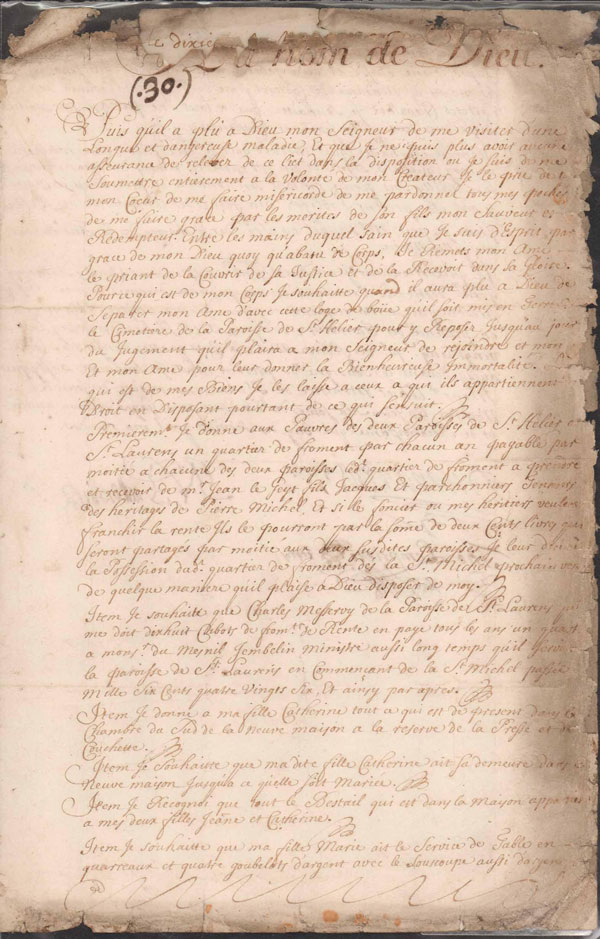 Le dixie
Au nom de Dieu.
(.30.)
Puis qu'il a plu a Dieu mon Seigneur de me visiter d'une
Longue et dangereuse maladie, Et que je ne puis plus avoir aucune
asseurance de relever de ce lict dans la disposition ou je suis de me
Soumettre entierement a la volonte de mon Createur Je le prie de t
mon Coeur de me faire misericorde de me pardonner tous mes peches
de me faire grace par les merites de son fils mon Sauveur et
Redempteur. Entre les mains duquel sain que je suis d'Esprit par
grace de mon Dieu quoy qu'abatu de Corps, Je Remets mon Ame
le priant de la Couvrir de sa Justice et de la Recevoir dans sa Gloire.
Pource qui est de mon Corps Je souhaitte quand il aura plu a Dieu de
Separer mon Ame d'avec cette loge de boüe qu'il soit mis en Terre
le Cimetiere de la Paroisse de St. Helier pour y Reposer Jusquau jour
du Jugement qu'il plaira a mon Seigneur de rejoindre et mon
Et mon Ame pour leur donner la Bienheureuse Immortalite.
qui est de mes Biens Je les laisse a ceux a qui ils appartiennent
Droit en Disposant pourtant de ce qui sensuit.
Premieremt. Je Donne aux Pauvres des deux Paroisses de St. Helier e
St. Laurens un quartier de froment par chacun an payable par
moitie a chacune des deux paroisses led. quartier de froment a prendre
et recevoir de mr. Jean le Feyt fils Jacques Et parchonniers Tenants
des heritages de Pierre Michel, Et si le susdit ou mes heritiers veulent
franchir la rente Ils le pourront par la some de deux Cents livres qui
seront partages par moitie aux deux susdites paroisses Je leur donne
la Possession dud. quartier de froment des la St. Michel prochain ven
de quelque maniere qu'il plaise a Dieu disposer de moy.
Item Je souhaite que Charles Messervy de la Paroisse de St. Laurens qui
me doit dixhuit Cabots de from. de Rente en paye tous les ans un quart
a monsr. du Mesnil Jembelin Ministre aussi long temps qu'il
la paroisse de St. Laurens en Commencant de la St. Michel passée
Mille Six Cents quatre Vingts Six, Et ainsy par apres.
Item Je donne a ma fille Catherine tout ce qui est de present dans la
Chambre du Sud de la Neuve maison a la reserve de la Presse et
Couchette.
Item Je Souhaitte que ma dite fille Catherine ait sa demeure dans
Neuve maison Jusqua ce quelle soit Mariee.
Item Je Recognoi que tout le Bestail qui est dans la Maison appar
a mes deux filles Jeane et Catherine.
Item Je souhaitte que ma fille Marie ait le Service de Table en
quarreaux et quatre goubelets d'argent avec le Soussoupe aussi d'argent